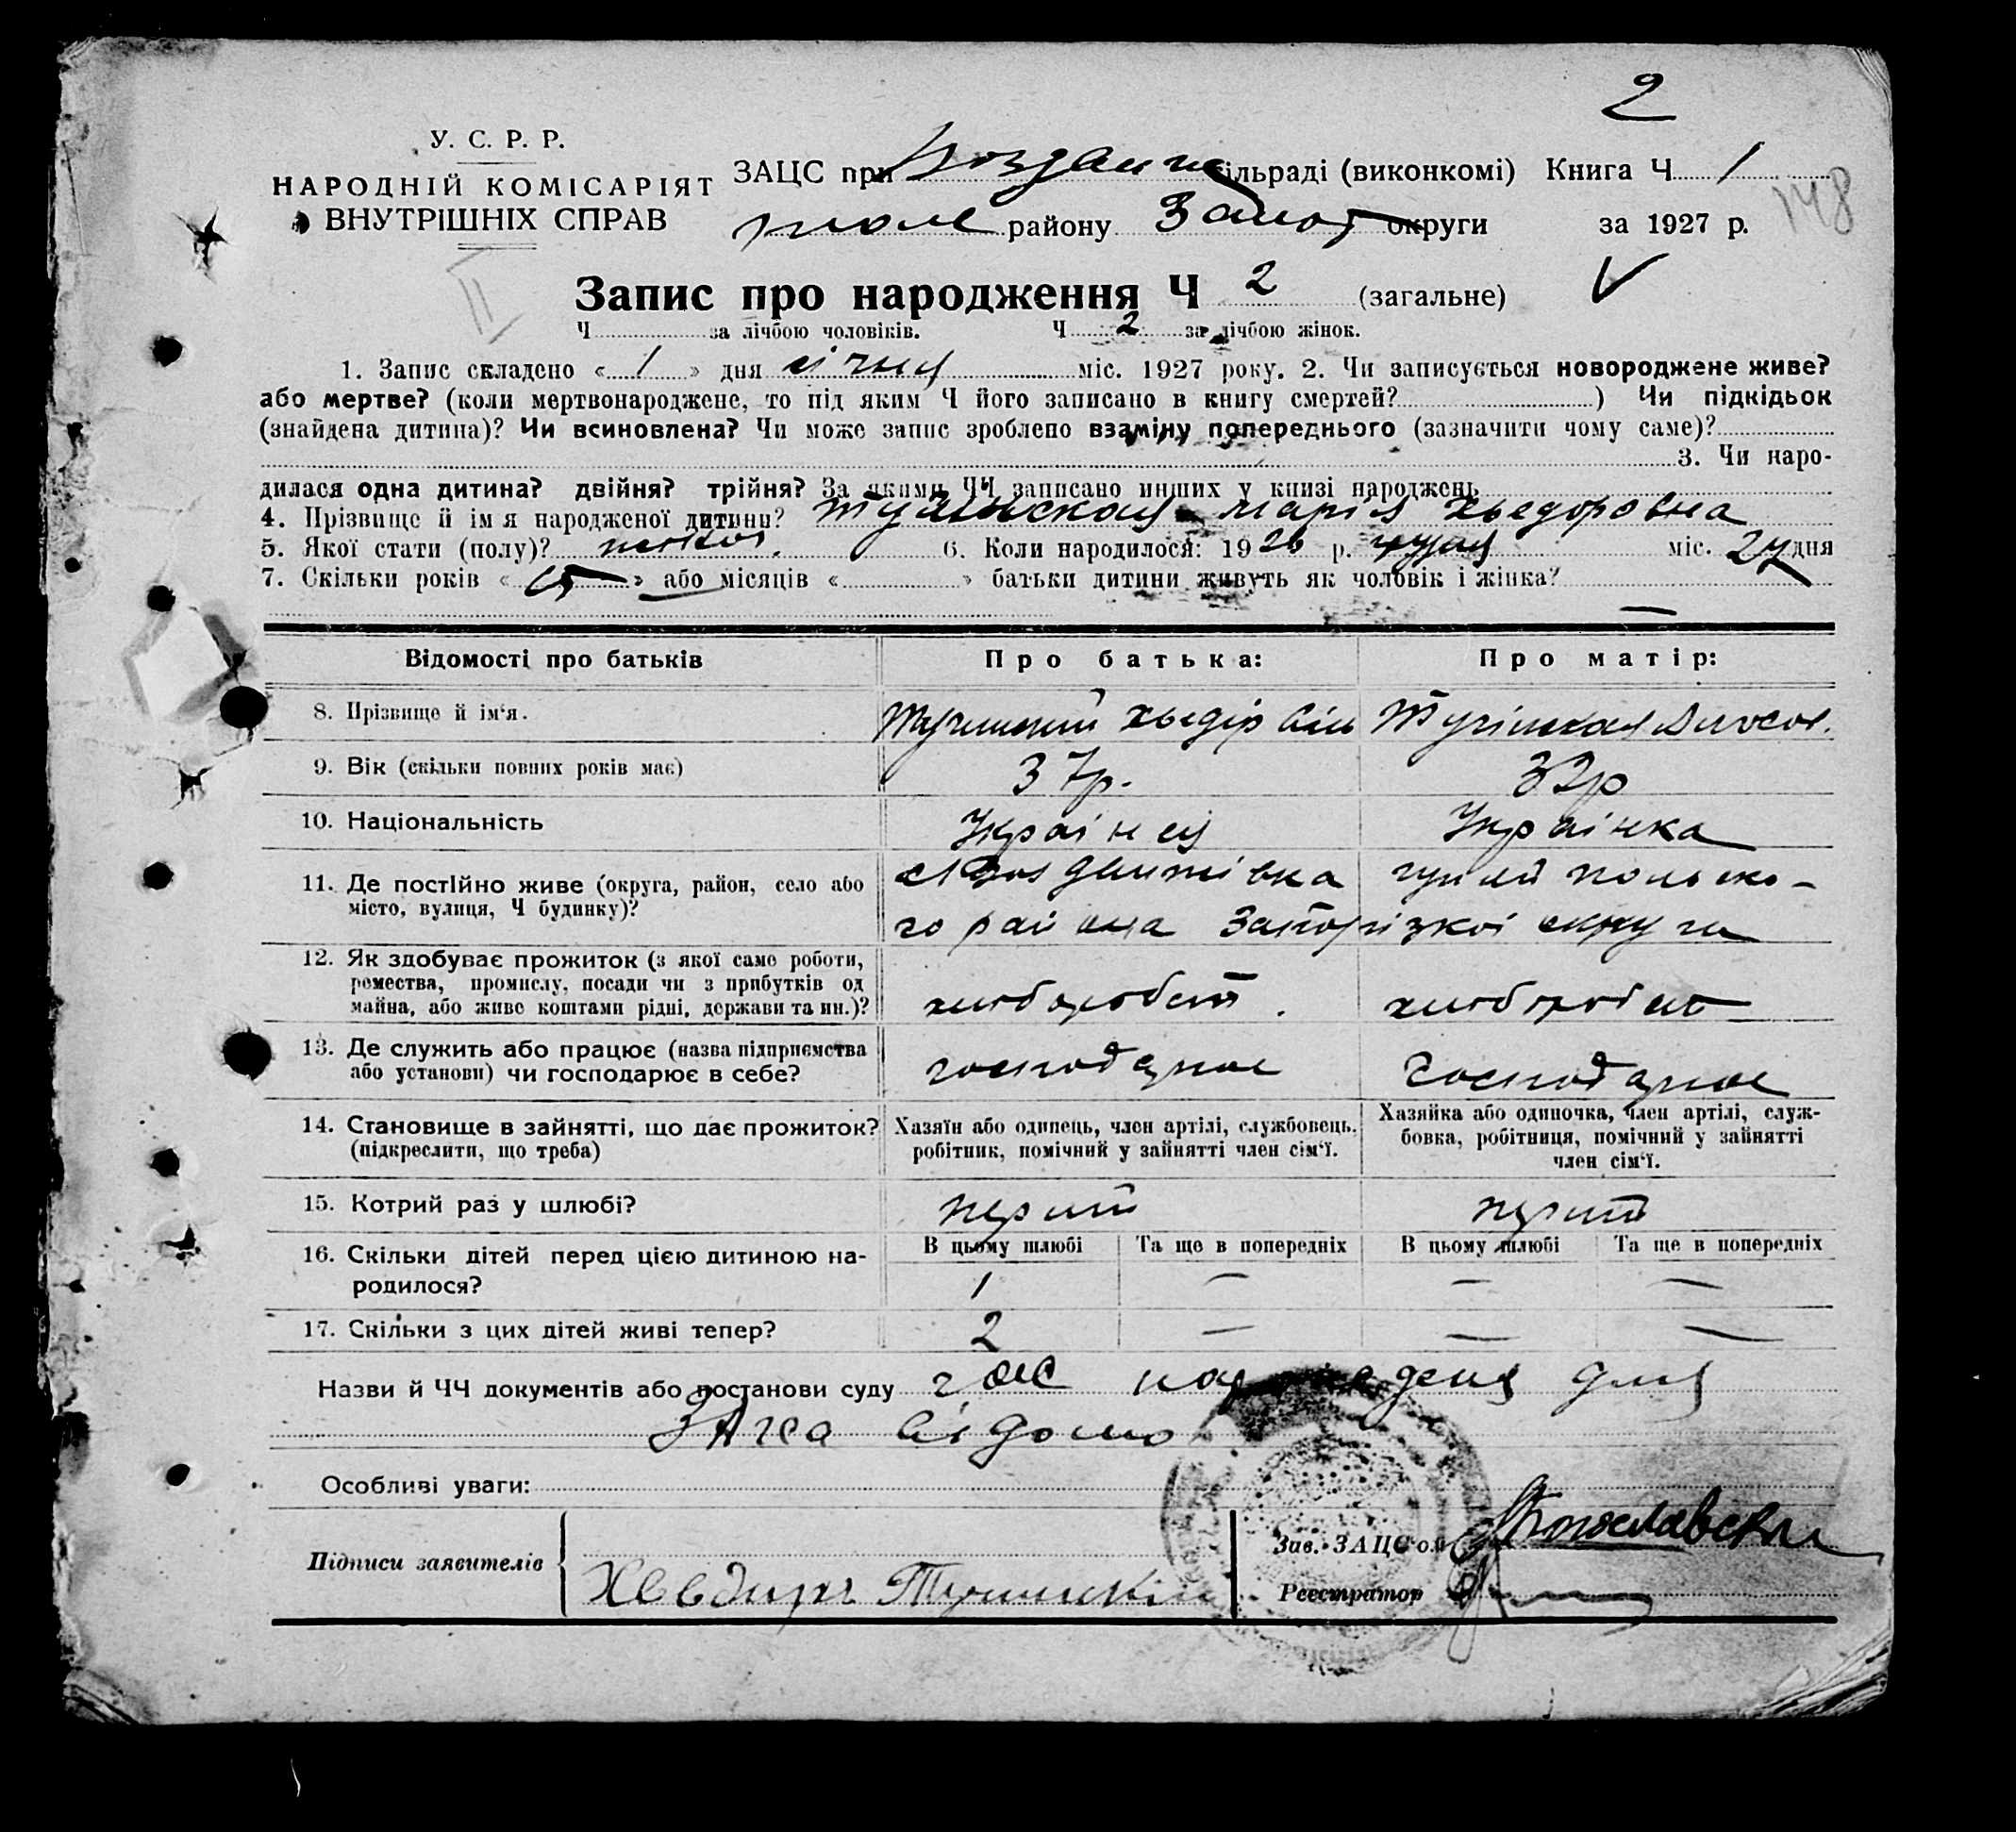 2
У. С. Р. Р.
НАРОДНІЙ КОМІСАРІЯТ
ВНУТРІШНІХ СПРАВ
ЗАЦС при сільраді (виконкомі) Книга Ч 1
148
району Запор округи за 1927 р.
II
Запис про народження Ч 2 (загальне) V
Ч за лічбою чоловіків. Ч 2 за лічбою жінок.
1. Запис складено « 1 » дня січня міс. 1927 року. 2. Чи записується новороджене живе?
або мертве? (коли мертвонароджене, то під яким Ч його записано в книгу смертей? ) Чи підкідьок
(знайдена дитина)? Чи всиновлена? Чи може запис зроблено взаміну попереднього (зазначити чому саме)?
3. Чи наро-
дилася одна дитина? двійня? трійня? За якими ЧЧ записано инших у книзі народжень
4. Прізвище й ім я народженої дитини? Марія Хьедоровна
5. Якої стати (полу)? 6. Коли народилося: 1926 р. міс. 27 дня
7. Скільки років « 15 » або місяців « » батьки дитини живуть як чоловік і жінка?
—
Відомості про батьків Про батька: Про матір:
8. Прізвище й ім'я. Хьедір
9. Вік (скільки повних років має) 37р. 32р
10. Національність Українец Українка
11. Де постійно живе (округа, район, село або
місто, вулиця, Ч будинку)?
го района Запорізкоі округи
12. Як здобуває прожиток (з якої само роботи,
ремества, промислу, посади чи з прибутків од
майна, або живе коштами рідні, держави та ин.)? хлібороб
13. Де служить або працює (назва підприємства
або установи) чи господарює в себе? господарює Господарює
14. Становище в зайнятті, що дає прожиток?
(підкреслити, що треба)
Хазяїн або одинець, член артілі, службовець,
робітник, помічний у зайнятті член сім'ї.
Хазяйка або одиночка, член артілі, служ-
бовка, робітниця, помічний у зайнятті
член сім'ї.
15. Котрий раз у шлюбі? перший перший
16. Скільки дітей перед цією дитиною на-
родилося?
В цьому шлюбі Та ще в попередніх В цьому шлюбі Та ще в попередніх
1 — — —
17. Скільки з цих дітей живі тепер? 2 — — —
Назви й ЧЧ документів або постанови суду для
ЗАгса відомо
Особливі уваги:
Підписи заявителів
Зав. ЗАЦС'ом
Реєстратор